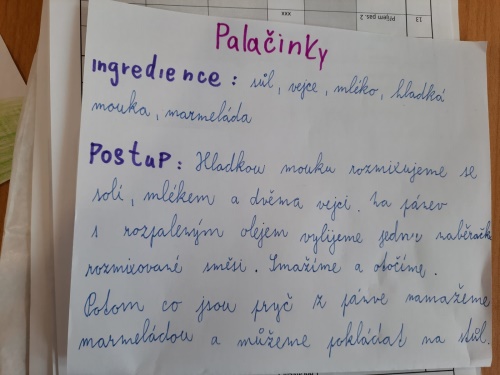 13
Příjem pas. 2
xxx
Palačinky
Ingredience: sůl, vejce, mléko, hladká
mouka, marmeláda
Postup: Hladkou mouku rozmixujeme se
solí, mlékem a dvěma vejci. Na pánev
s rozpaleným olejem vylijeme jednu naběračku
rozmixované směsi. Smažíme a otočíme.
Potom co jsou pryč z pánve namažeme
marmeládou a můžeme pokládat na stůl.